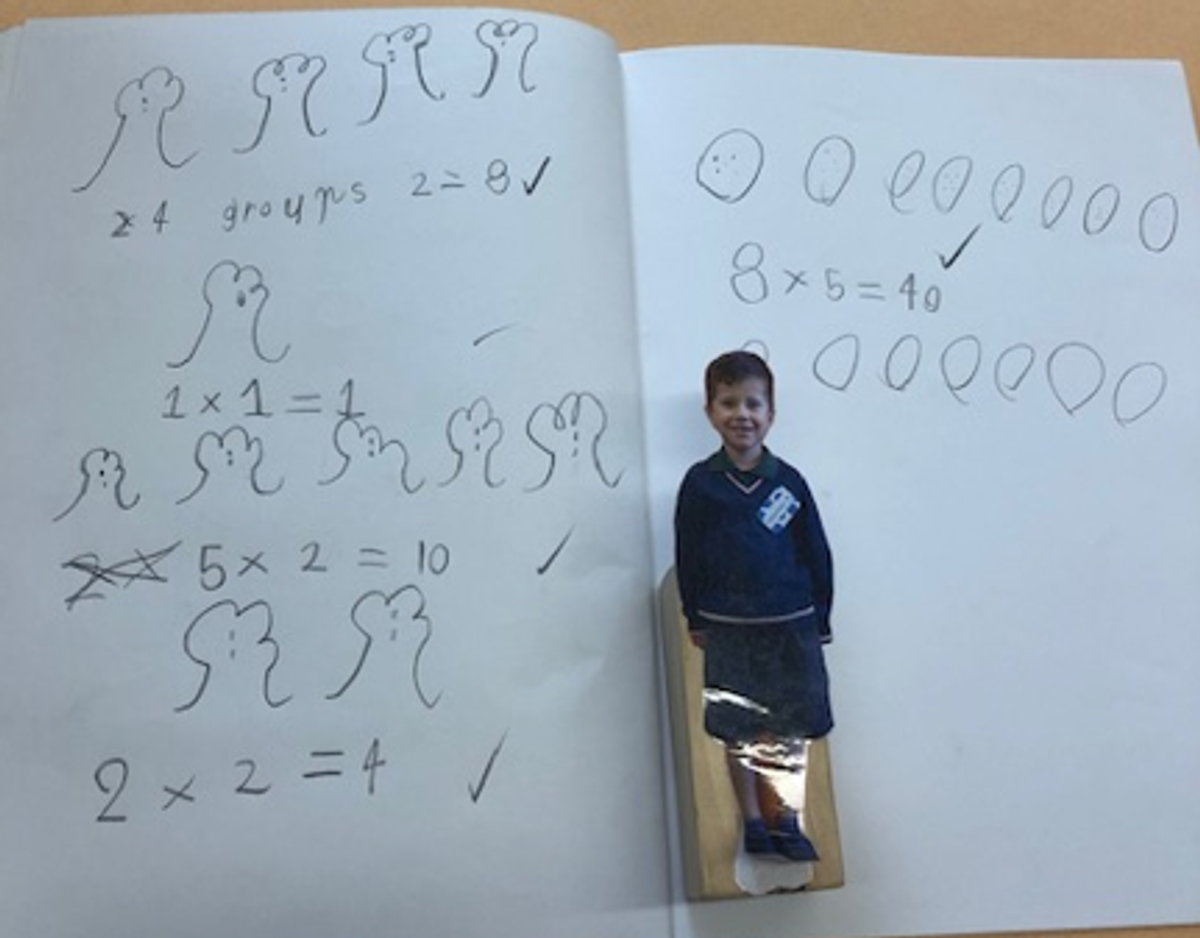 4 groups 2 = 8 ✓
1 × 1 = 1
5 × 2 = 10 ✓
2 × 2 = 4 ✓
8 × 5 = 40 ✓